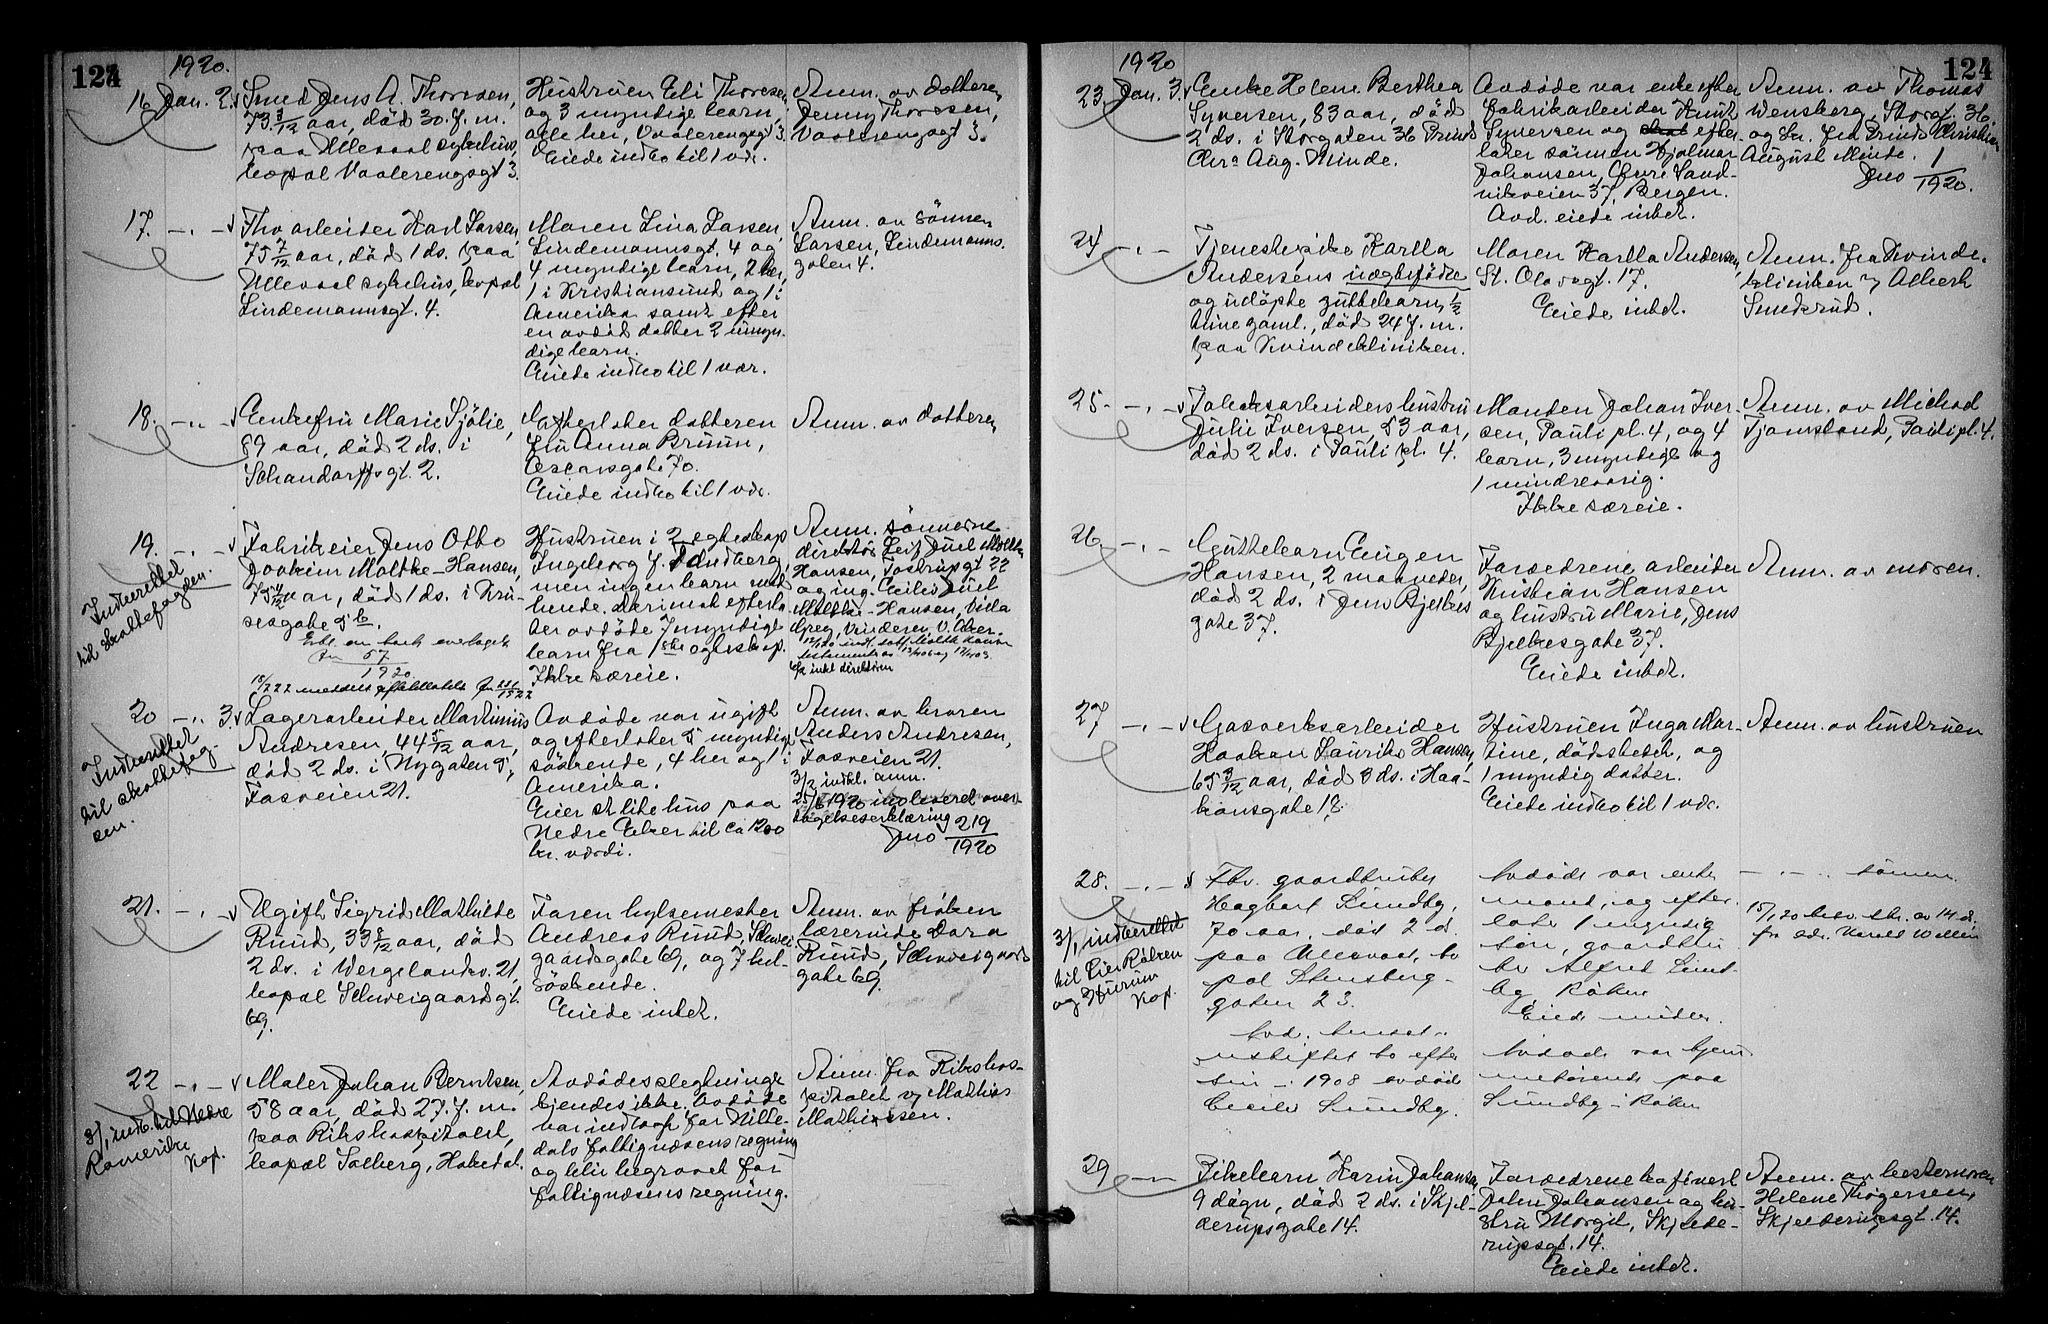 124
1920.
16 Jan. 2.
Smed Jens A. Thoresen,
73 3/12 aar, död 30. f. m.
paa Ullevaal sykehus,
bopæl Vaalerengsgt 3.
Hustruen Eli Thoresen
og 3 myndige barn,
alle her, Vaalerengsgt 3.
Eiede indbo til 1 vær.
Anm. av datteren
Jenny Thoresen,
Vaalerengsgt 3.
17. -„-
Fhv arbeider Karl Larsen,
75 7/12 aar, död 1 ds. paa
Ullevaal sykehus, bopæl
Lindemannsgt. 4.
Maren Lina Larsen,
Lindemannsgt. 4 og
4 myndige barn, 2 her,
1 i Kristiansund og 1 i
Amerika samt efter
en avdöd datter 2 umyn-
dige barn.
Eiede indbo til 1 vær.
Anm. av sönnen
Larsen, Lindemanns-
gaten 4.
18. -„-
Enkefru Marie Sjölie,
89 aar, död 2 ds. i
Schandorffsgt. 2.
Efterlater datteren
fru Anna Bruun,
Oscarsgate 70.
Eiede indbo til 1 vær.
Anm. av datteren
19. -„-
Indberettet
til skattefogden.
Fabrikeier Jens Otto
Joakim Moltke-Hansen,
aar, död 1 ds. i Kru-
sesgate 5 b.
57
1920
Hustruen i 2 egteskap
Ingeborg f. Sandberg,
men ingen barn med
hende. Derimot efterla-
ter avdöde 7 myndige
barn fra 1ste egteskap.
Ikke særeie.
Anm. sönnerne
direktör Leif Juel Moltke
Hansen, Tostrupgt 22
og ing. Eiliv Juel
Moltke-Hansen, Villa
Vinderen, V. Aker.
20 -„- 3.
Indberettet
til skattefog-
den.
Lagerarbeider Martinius
Andresen, 44 5/12 aar,
död 2 ds. i Nygaten 5,
Fasveien 21.
Avdöde var ugift
og efterlater 5 myndige
söskende, 4 her og 1 i
Amerika.
Eier et lite hus paa
Nedre Eker til ca 1200
kr. værdi.
Anm. av broren
Anders Andresen,
Fasveien 21.
3/2 indkl. anm.
25/6 1920 innleveret over-
tagelseserklæring
Jno 219
1920
21. -„-
Ugift Sigrid Mathilde
Ruud, 33 8/12 aar, död
2 ds. i Wergelandsv. 21,
bopæl Schweigaardsgt.
69.
Faren hylsemester
Andreas Ruud, Schwei-
gaardsgate 69, og 7 hel-
söskende.
Eiede intet.
Anm. av fröken
lærerinde Dora
Ruud, Schweigaards
gate 69.
22 -„-
3/1 indb. til Nedre
Romerike
Kop.
Maler Johan Berntsen,
58 aar, död 27. f. m.
paa Rikshospitalet,
bopæl Solberg, Hakedal.
Avdödes slegtninge
kjendes ikke. Avdöde
var indlagt for Nitte-
dals fattigvæsens regning
og blir begravet for
fattigvæsens regning.
Anm. fra Rikshos-
pitalet v/ Mathias
Mathiassen.
124
1920
23. Jan. 3.
Enke Helene Berthea
Syversen, 83 aar, död
2 ds. i Storgaten 36 Prins
Chrs Aug. Minde.
Avdöde var enke efter
fabrikarbeider Knut
Syversen og efter-
later sönnen Hjalmar
Johansen, Övre Sand-
viksveien 37, Bergen.
Avd. eiede intet.
Anm. av Thomas
Wensberg, Storgt. 36.
og br. fra Prinds Christian
August Minde.
Jno 1
1920.
24 -„-
Tjenestepike Karlla
Andersens uegtefödte
og udöpte guttebarn, 1/2
time gaml., död 24 f. m.
paa Kvindekliniken.
Moren Karlla Andersen,
St. Olavsgt. 17.
Eiede intet.
Anm. fra Kvinde-
kliniken v/ Albert
Smedsrud.
25. -„-
Tobaksarbeiders hustru
Julie Iversen, 53 aar,
död 2 ds. i Pauli pl. 4.
Manden Johan Iver-
sen, Pauli pl. 4, og 4
barn, 3 myndige og
1 mindreaarig.
Ikke særeie.
Anm. av Michael
Tjomsland, Paulipl. 4.
26 -„-
Guttebarn Eugen
Hansen, 2 maaneder,
död 2 ds. i Jens Bjelkes
gate 37.
Forældrene arbeider
Kristian Hansen
og hustru Marie, Jens
Bjelkesgate 37.
Eiede intet.
Anm. av moren.
27 -„-
Gasverksarbeider
Haakon Laurits Hansen,
65 3/12 aar, död 3 ds. i Haa-
konsgate 18.
Hustruen Inga Mar-
tine, dödsbeda, og
1 myndig datter.
Eiede indbo til 1 vær.
Anm. av hustruen
28. -„-
3/1 indberettet
til Lier Röken
og Hurum
Kop.
Fhv. gaardbruker
Hagbart Lundby,
70 aar, död 2 ds
paa Ullevaal, bo
pæl Stensberg-
gaten 23.
Avd. hensat i
uskiftet bo efter
sin i 1908 avdöde
Cecilie Lundby.
Avdöde var enke
mand, og efter
later 1 myndig
sön, gaardbru
ker Alfred Lund-
by, Röken
Eiede midler.
Avdöde var hjem
mehörende paa
Lundby i Röken
-„- sönnen.
15/1 20 bekr. skr. av 14. ds.
29 -„-
Pikebarn Karin Johansen,
9 dögn, död 2 ds. i Skjel-
derupsgate 14.
Forældrene
John Johansen og hu-
stru Margit, Skjelde-
rupsgt. 14.
Eiede intet.
Anm. av bestemoren
Helene Thögersen,
Skjelderupsgt. 14.